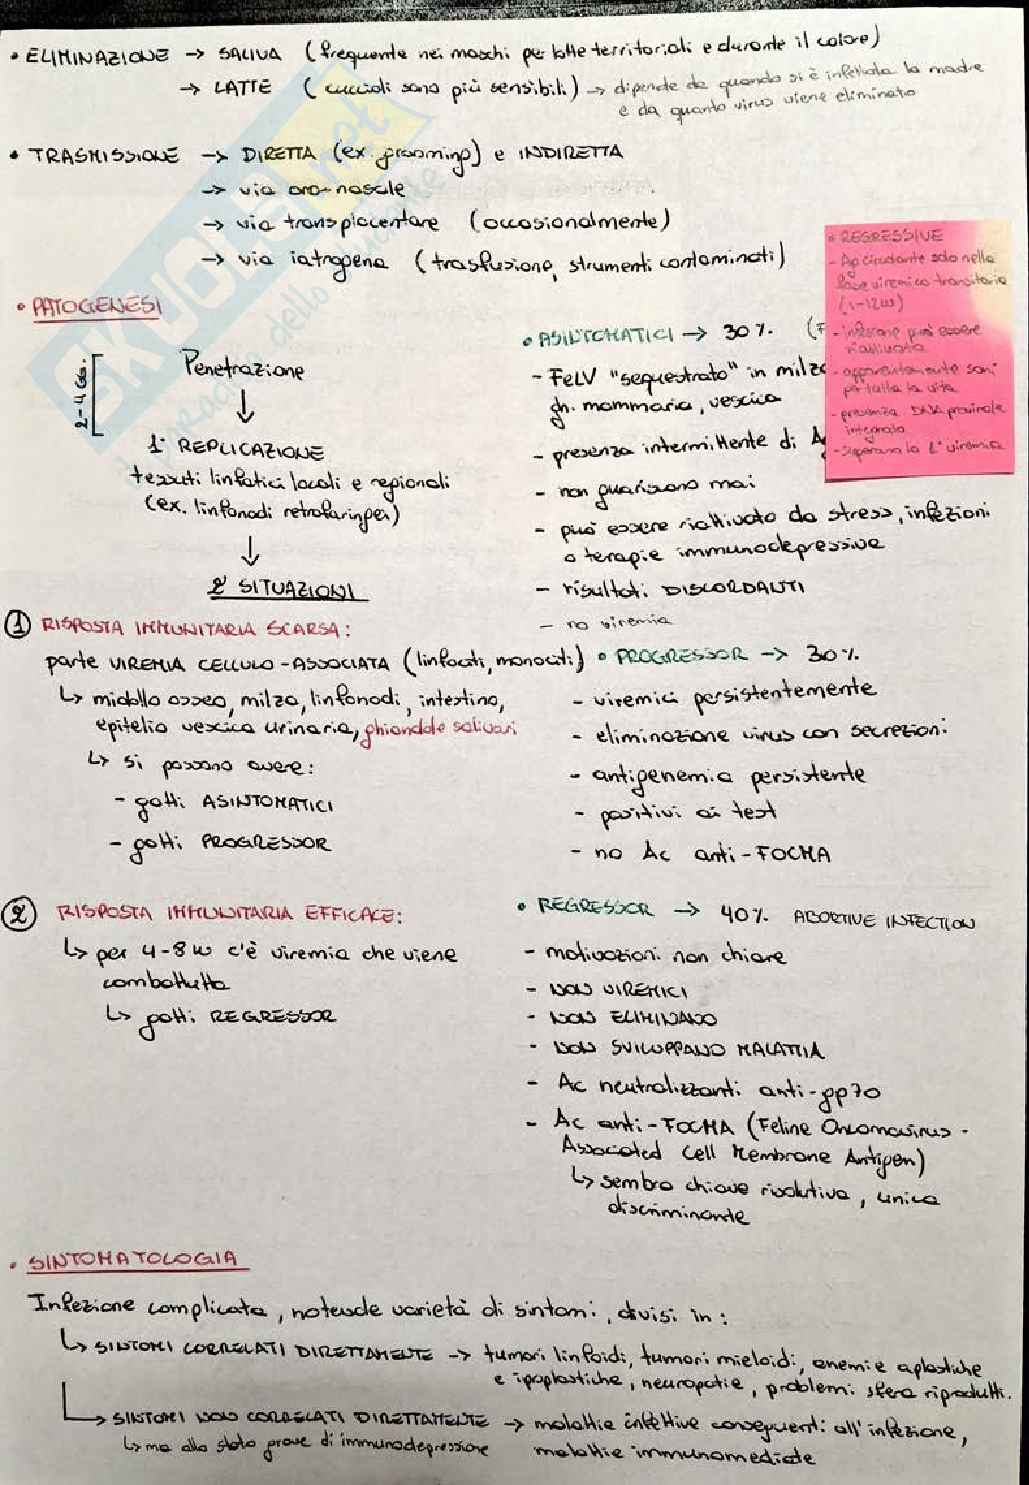 • ELIMINAZIONE → SALIVA (frequente nei maschi per lotte territoriali e durante il calore)
→ LATTE (cuccioli sono più sensibili) → dipende da quando si è infettata la madre
e da quanto virus viene eliminato
• TRASMISSIONE → DIRETTA (ex. grooming) e INDIRETTA
→ via oro-nasale
→ via transplacentare (occasionalmente)
→ via iatrogena (trasfusione, strumenti contaminati)
• PATOGENESI
2-4 GG.
Penetrazione
↓
1° REPLICAZIONE
tessuti linfatici locali e regionali
(ex. linfonodi retrofaringei)
↓
2 SITUAZIONI
① RISPOSTA IMMUNITARIA SCARSA:
parte VIREMIA CELLULO-ASSOCIATA (linfociti, monociti)
↳ midollo osseo, milza, linfonodi, intestino,
epitelio vescica urinaria, ghiandole salivari
↳ si possono avere:
- gatti ASINTOMATICI
- gatti PROGRESSOR
② RISPOSTA IMMUNITARIA EFFICACE:
↳ per 4-8 w c'è viremia che viene
combattuta
↳ gatti REGRESSOR
• ASINTOMATICI → 30%. (F
- FeLV "sequestrato" in milza
gh. mammaria, vescica
- presenza intermittente di A
- non guariscono mai
- può essere riattivato da stress, infezioni
o terapie immunodepressive
- risultati DISCORDANTI
- no viremia
• REGRESSIVE
- Ag circolante solo nella
fase viremica transitoria
(1-12w)
- infezione può essere
riattivata
- apparentemente sani
per tutta la vita
- presenza DNA provirale
integrato
- superano la 1° viremia
• PROGRESSOR → 30%
- viremici persistentemente
- eliminazione virus con secrezioni
- antigenemia persistente
- positivi ai test
- no Ac anti-FOCMA
• REGRESSOR → 40% ABORTIVE INFECTION
- motivazioni non chiare
- NON VIREMICI
- NON ELIMINANO
- NON SVILUPPANO MALATTIA
- Ac neutralizzanti anti-gp70
- Ac anti-FOCMA (Feline Oncornavirus-
Associated Cell Membrane Antigen)
↳ sembra chiave risolutiva, unica
discriminante
• SINTOMATOLOGIA
Infezione complicata, notevole varietà di sintomi, divisi in:
↳ SINTOMI CORRELATI DIRETTAMENTE → tumori linfoidi, tumori mieloidi, anemie aplastiche
e ipoplastiche, neuropatie, problemi sfera riprodutt.
↳ SINTOMI NON CORRELATI DIRETTAMENTE → malattie infettive conseguenti all'infezione,
↳ ma allo stato grave di immunodepressione malattie immunomediate
SKUOLA.net